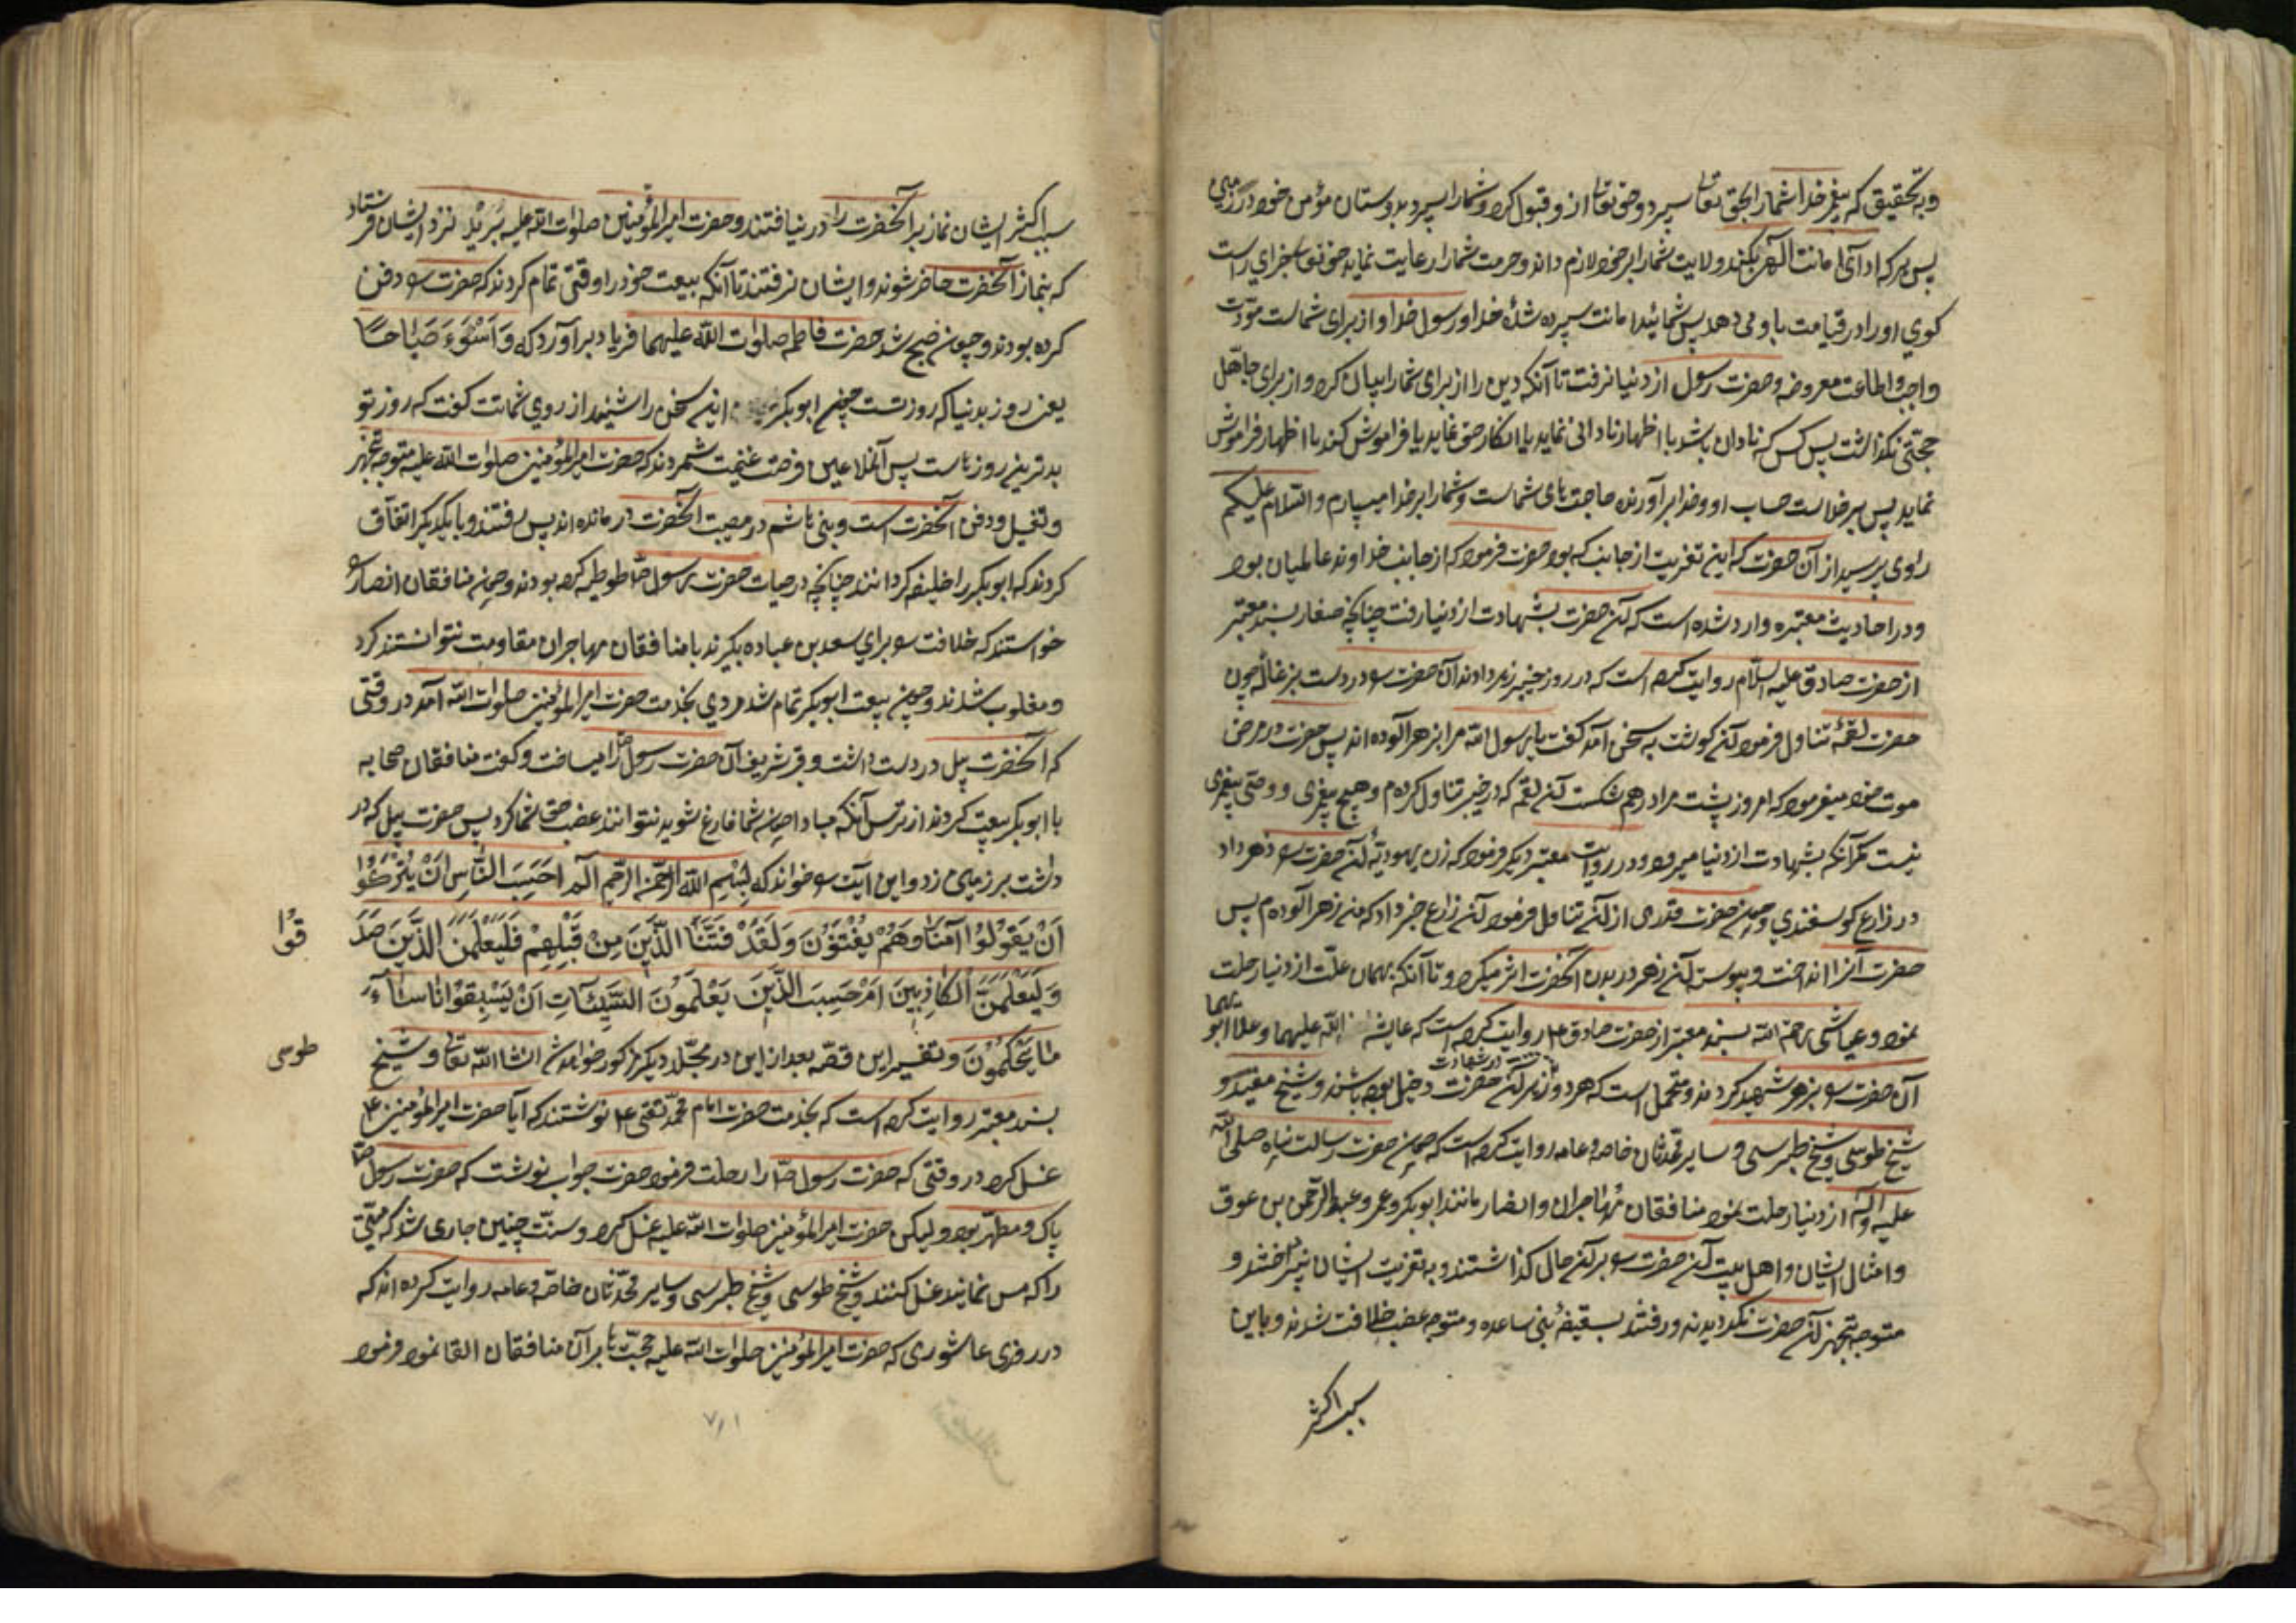 وبتحقیق که پیغمبر خدا شما را بحق تعالی سپرد و حق تعالی از و قبول کرد و شما را سپرد بدوستان مؤمن خود در زمین
پس هر که اداى امانت الهی بکند و ولایت شما را بر خود لازم داند و حرمت شما را رعایت نماید حق تعالی جزای راست
کوی او را در قیامت باو می دهد پس شمائید امانت سپرده شدهٔ خدا و رسول خدا و از برای شماست مودت
واجب و اطاعت معروضه و حضرت رسول از دنیا نرفت تا آنکه دین را از برای شما را بیان کرد و از برای جاهل
حجتی نکذاشت پس کسی که نادان باشد یا اظهار نادانی نماید یا انکار حق نماید یا فراموش کند یا اظهار فراموش
نماید پس بر خداست حساب او و خدا برآورنده حاجت های شماست و شما را بر خدا میسپارم والسّلام علیکم
راوی پرسید از آن حضرت که این تعزیت از جانب که بود حضرت فرمود که از جانب خداوند عالمیان بود
و در احادیث معتبره وارد شده است که آن حضرت بشهادت از دنیا رفت چنانچه صفار بسند معتبر
از حضرت صادق علیه السّلام روایت کرده است که در روز خیبر زهر دادند آن حضرت را در دست بزغاله چون
حضرت لقمهٔ تناول فرمود آن کوشت به سخن آمد کفت یا رسول الله مرا بزهر آلوده اند پس حضرت در مرض
موت خود میفرمود که امروز پشت مرا درهم شکست آن لقمه که در خیبر تناول کردم و هیچ پیغمبری و وصی پیغمبری
نیست مکر آنکه بشهادت از دنیا میرود و در روایت معتبر دیکر فرمود که زن یهودیهٔ آن حضرت را زهر داد
در زراع کوسفندی و چون حضرت قدری از آن تناول فرمود آن زراع خبر داد که من زهر آلوده ام پس
حضرت آنرا انداخت و پیوسته آن زهر در بدن آنحضرت اثر میکرد تا آنکه بهمان علّت از دنیا رحلت
نمود و عیاشی رحمه الله بسند معتبر از حضرت صادق ع روایت کرده است که عایشه الله علیهما و علا ابو
آن حضرت را بزهر شهید کردند و محتمل است که هر دو زهر آن حضرت دخیل بوده باشند و شیخ مفید و
شیخ طوسی و شیخ طبرسی و سایر محدثان خاصه و عامه روایت کرده است که چون حضرت رسالت پناه صلی الله
علیه و آله از دنیا رحلت نمود منافقان مهاجران و انصار مانند ابوبکر و عمر و عبدالرحمن بن عوف
و امثال ایشان و اهل بیت آن حضرت را بر آن حال کذاشتند و به تعزیت ایشان نپرداختند و
متوجه تجهیز آن حضرت نکردیدند و رفتند بسقیفهٔ بنی ساعده و متوجه غصب خلافت شدند و باین
سبب اکثر
سبب اکثر ایشان نماز بر آنحضرت را در نیافتند و حضرت امیرالمؤمنین صلوات الله علیه بُرَیْدَ نزد ایشان فرستاد
که بنماز آنحضرت حاضر شوند و ایشان نرفتند تا آنکه بیعت خود را وقتی تمام کردند که حضرت را دفن
کرده بودند و چون صبح شد حضرت فاطمه صلوات الله علیهما فریاد برآورد که وَاَسُوْءَ صَبَاحَاً
یعنی روز بدنیا که روز تست چون ابوبکر این سخن را شنید از روی شماتت کفت که روز تو
بدترین روزهاست پس آنملاعین فرصت غنیمت شمردند که حضرت امیرالمؤمنین صلوات الله علیه متوجه تجهیز
و تغسیل و دفن آنحضرت است و بنی هاشم در مصیبت آنحضرت درمانده اند پس رفتند و با یکدیکر اتفاق
کردند که ابوبکر را خلیفه کردانند چنانچه در حیات حضرت رسول ص طوطیه کرده بودند و چون منافقان انصار
خواستند که خلافت را برای سعد بن عباده بکیرند با منافقان مهاجران مقاومت نتوانستند کرد
و مغلوب شدند و چون بیعت ابوبکر تمام شد مردی بخدمت حضرت امیرالمؤمنین صلوات الله آمد در وقتی
که آنحضرت بیل در دست داشت و قبر شریف آن حضرت رسول ص را میساخت و کفت منافقان صحابه
با ابوبکر بیعت کردند از ترس آنکه مبادا چون شما فارغ شوید نتوانند غصب حق شما کرد پس حضرت بیل که در
داشت بر زمین زد و این آیت را خواند که بِسْمِ اللهِ الرَّحْمنِ الرَّحِیمِ الٓمٓ اَحَسِبَ النَّاسُ اَنْ یُتْرَکُوا
اَنْ یَقُولُوا آمَنَّا وَهُمْ یُفْتَنُونَ وَلَقَدْ فَتَنَّا الَّذِینَ مِنْ قَبْلِهِمْ فَلَیَعْلَمَنَّ الَّذِینَ صَدَ
قُوا
وَلَیَعْلَمَنَّ الْکَاذِبِینَ اَمْ حَسِبَ الَّذِینَ یَعْلَمُونَ السَّیِّئَاتِ اَنْ یَسْبِقُوْانَا سَاءَ
مَا یَحْکُمُونَ و تفسیر این قصّه بعد از این در مجلّد دیکر مذکور خواهد شد انشاالله تعالی و شیخ
طوسی
بسند معتبر روایت کرده است که بخدمت حضرت امام محمّد تقی ع نوشتند که آیا حضرت امیرالمؤمنین ع
غسل کرد در وقتی که حضرت رسول ص را رحلت فرمود حضرت جواب نوشت که حضرت رسول ص
پاک و مطهّر بود و لیکن حضرت امیرالمؤمنین صلوات الله علیه غسل کرد و سنّت چنین جاری شد که میّتی
را که مس نمایند غسل کنند و شیخ طوسی و شیخ طبرسی و سایر محدّثان خاصه و عامه روایت کرده اند که
در روزی عاشوری که حضرت امیرالمؤمنین صلوات الله علیه حجّت ها بر آن منافقان القا نمود فرمود